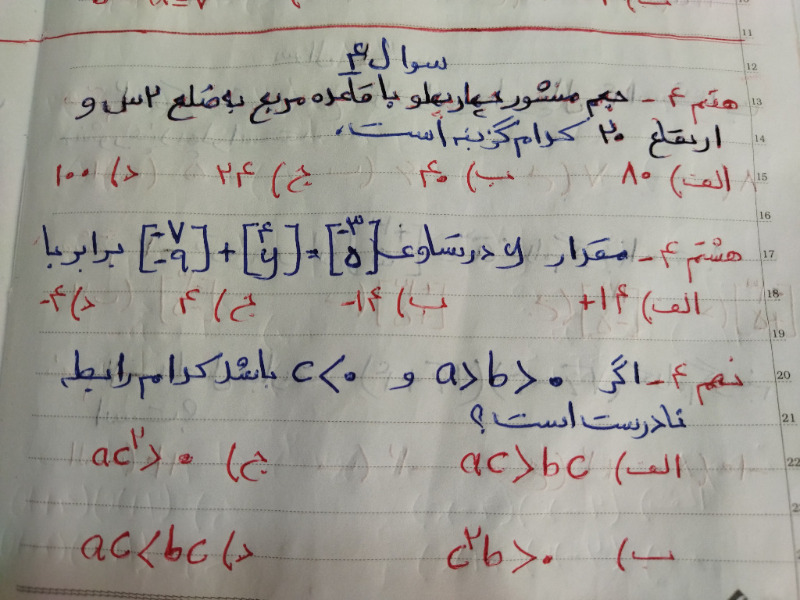 سوال ۴
هفتم ۴ - حجم منشور چهارپهلو با قاعده مربع به ضلع ۲س و
ارتفاع ۲۰ کدام گزینه است.
الف) ۸۰ ب) ۴۰ ج) ۲۴ د) ۱۰۰
هشتم ۴ - مقدار y در تساوی [-۷ -۹] + [۴ y] = [-۳ ۵] برابر با
الف) +۱۴ ب) -۱۴ ج) ۴ د) -۴
نهم ۴ - اگر a>b>۰ و c<۰ باشد کدام رابطه
نادرست است؟
الف) ac>bc ج) ac²>۰
ب) c²b>۰ د) ac<bc